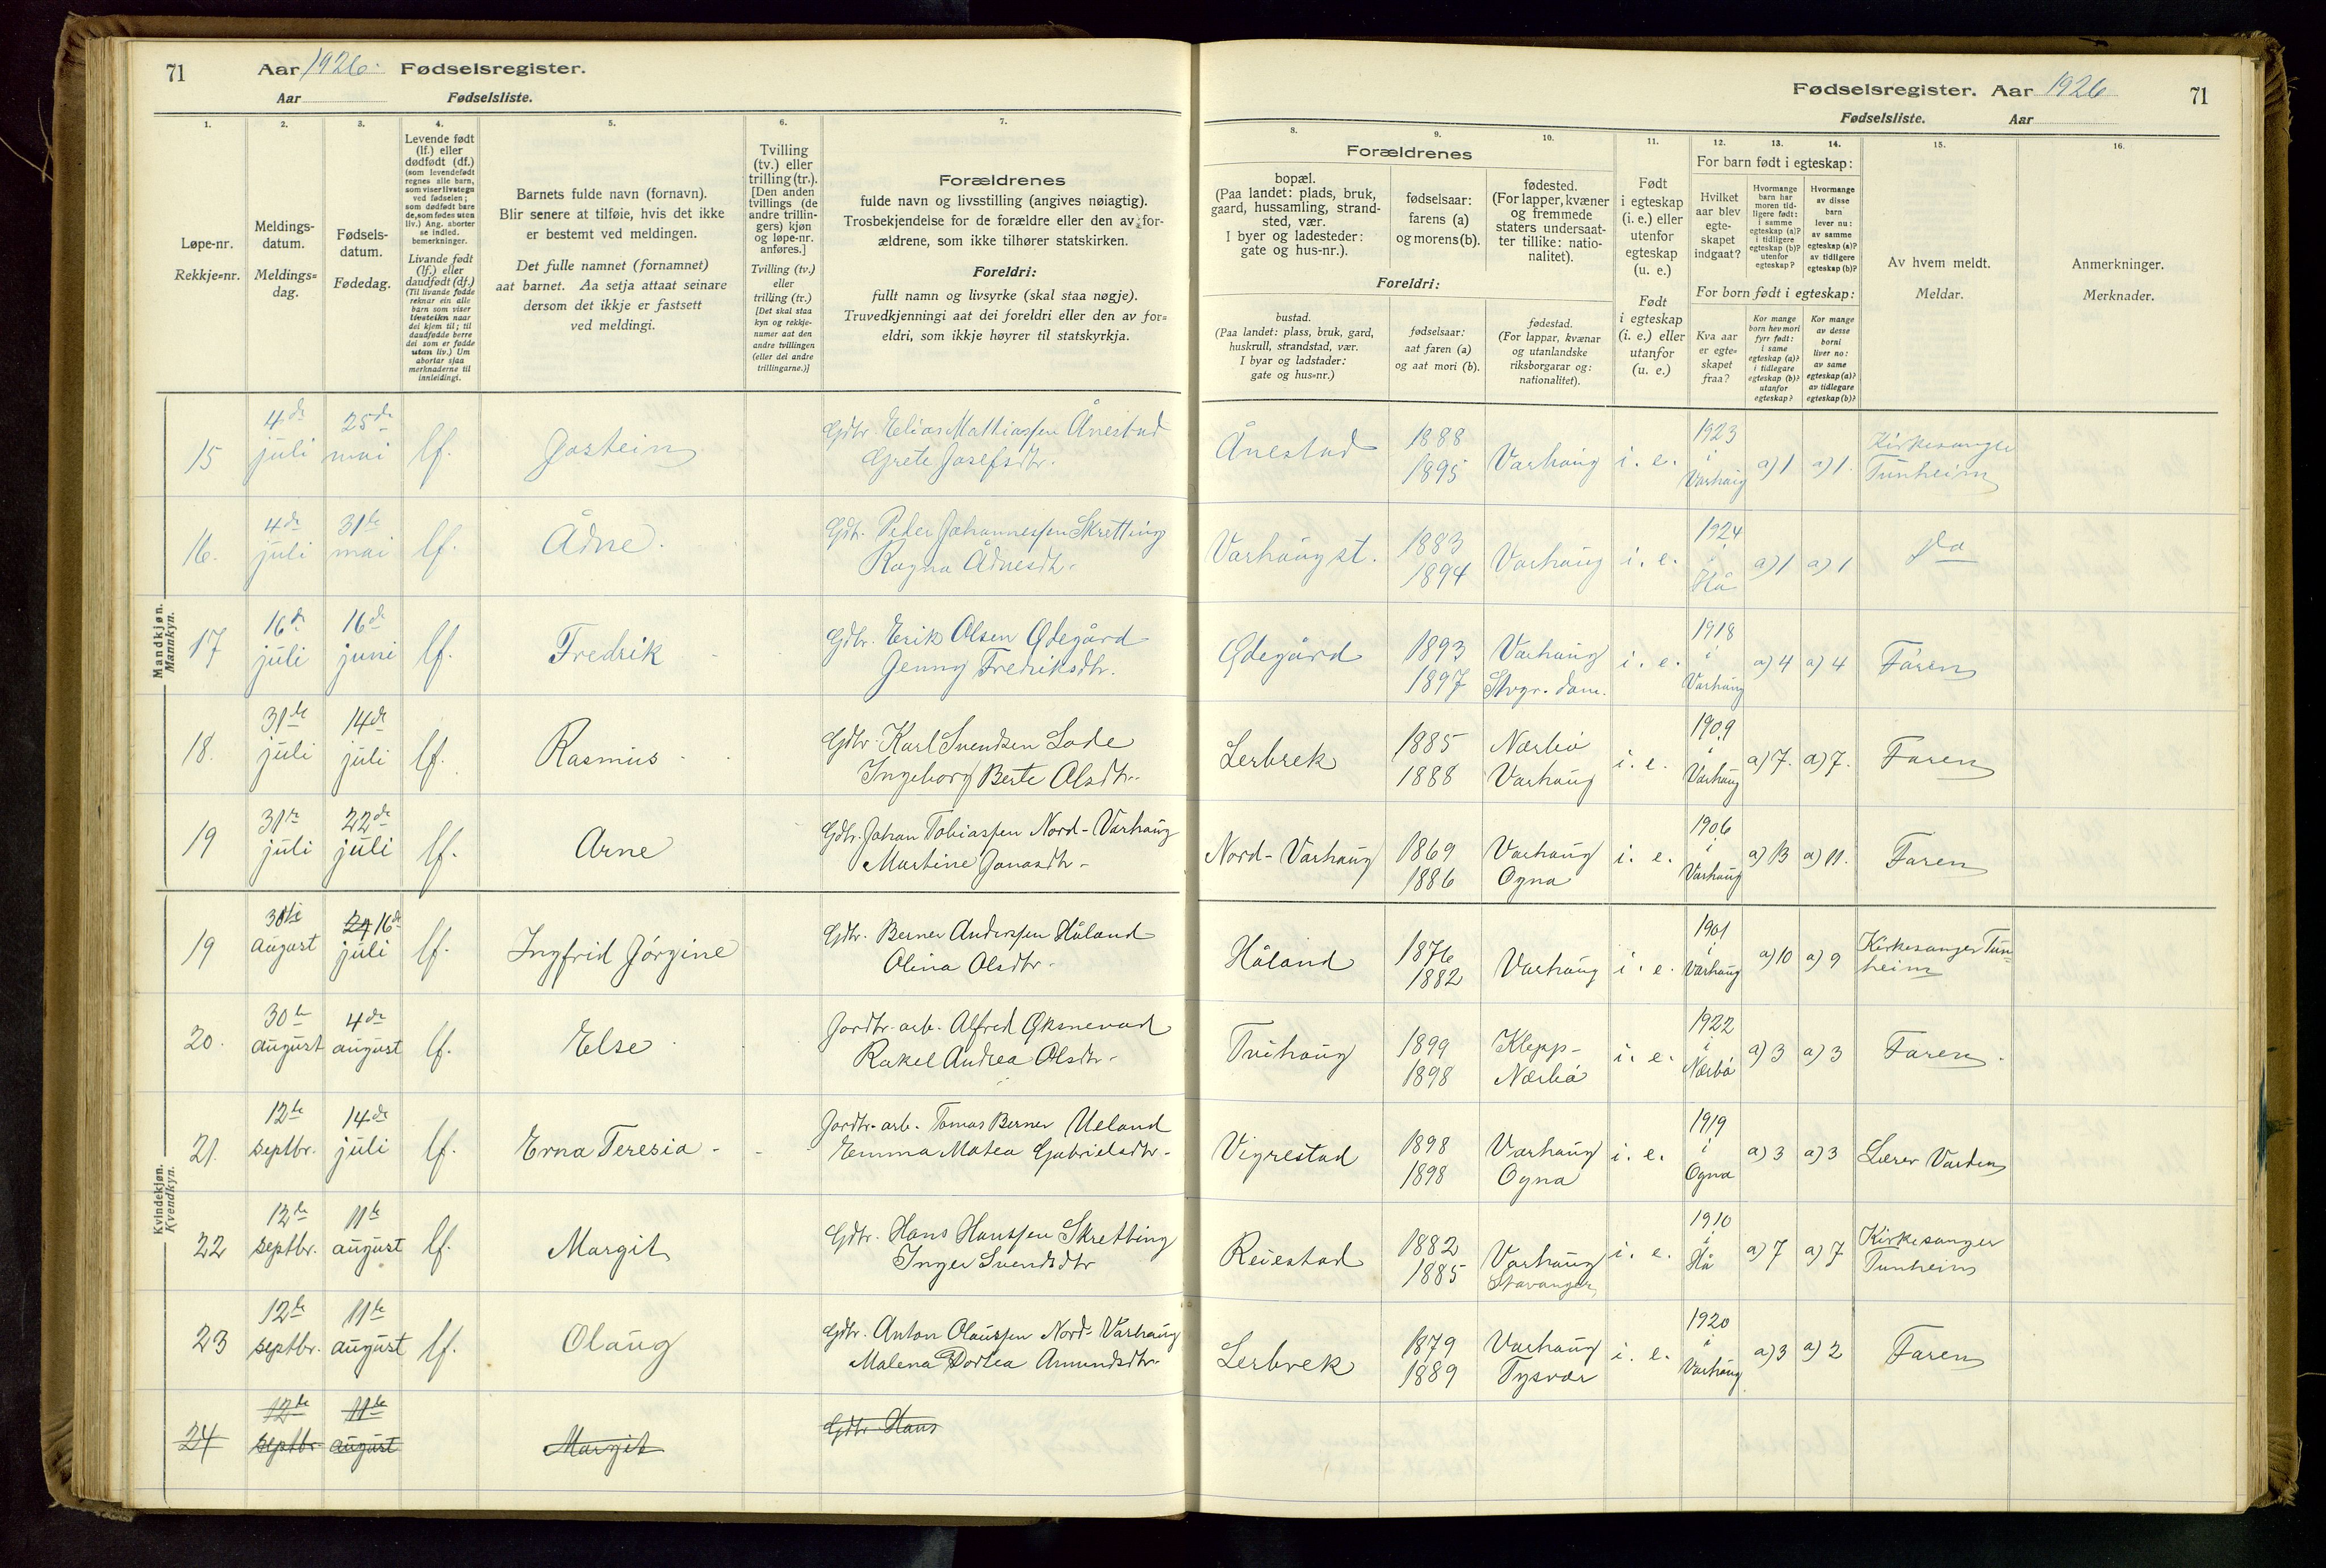 71 Aar 1926. Fødselsregister.
Aar Fødselsliste.
Fødselsregister. Aar 1926 71
Fødselsliste. Aar
1. 2. 3. 4. 5. 6. 7.
Løpe-nr.
Rekkje=nr.
Meldings-
datum.
Meldings=
dag.
Fødsels-
datum.
Fødedag.
Levende født
(lf.) eller
dødfødt (df.)
(som levendefødt
regnes alle barn,
som viser livstegn
ved fødselen;
som dødfødt bare
de, som fødes uten
liv.) Ang. aborter
se indled.
bemerkninger.
Livande født
(lf.) eller
daudfødt (df.)
(Til livande fødde
reknar ein alle
barn som viser
livsteikn naar
dei kjem til; til
daudfødde berre
dei som er fødde
utan liv.) Um
abortar sjaa
merknaderne til
innleidingi.
Barnets fulde navn (fornavn).
Blir senere at tilføie, hvis det ikke
er bestemt ved meldingen.
Det fulle namnet (fornamnet)
aat barnet. Aa setja attaat seinare
dersom det ikkje er fastsett
ved meldingi.
Tvilling
(tv.) eller
trilling (tr.).
[Den anden
tvillings (de
andre trillin-
gers) kjøn
og løpe-nr.
anføres.]
Tvilling (tv.)
eller
trilling (tr.)
[Det skal staa
kyn og rekkje-
numer aat den
andre tvillingen
(eller dei andre
trillingarne.)]
Forældrenes
fulde navn og livsstilling (angives nøiagtig).
Trosbekjendelse for de forældre eller den av for-
ældrene, som ikke tilhører statskirken.
Foreldri:
fullt namn og livsyrke (skal staa nøgje).
Truvedkjenningi aat dei foreldri eller den av for=
eldri, som ikkje høyrer til statskyrkja.
8. 9. 10. 11. 12. 13. 14. 15. 16.
Forældrenes
bopæl.
(Paa landet: plads, bruk,
gaard, hussamling, strand-
sted, vær.
I byer og ladesteder:
gate og hus-nr.).
fødselsaar:
farens (a)
og morens (b).
fødested.
(For lapper, kvæner
og fremmede
staters undersaat-
ter tillike: natio-
nalitet).
Foreldri:
bustad.
(Paa landet: plass, bruk, gard,
huskrull, strandstad, vær.
I byar og ladstader:
gate og hus=nr.)
fødselsaar:
aat faren (a)
og aat mori (b).
fødestad.
(For lappar, kvænar
og utanlandske
riksborgarar og:
nationalitet).
Født
i egteskap
(i. e.) eller
utenfor
egteskap
(u. e.)
Født
i egteskap
(i. e.) eller
utanfor
(u. e.)
For barn født i egteskap:
Hvilket
aar blev
egte-
skapet
indgaat?
Hvormange
barn har
moren tid-
ligere født:
i samme
egteskap (a)?
i tidligere
egteskap (b)?
utenfor
egteskap?
Hvormange
av disse
barn
lever nu:
av samme
egteskap (a)?
av tidligere
egteskap (b)?
For born født i egteskap:
Kva aar
er egte=
skapet
fraa?
Kor mange
born hev mori
fyrr født:
i same
egteskap (a)?
i tidlegare
egteskap (b)?
utanfor
egteskap?
Kor mange
av desse
borni
liver no:
av same
egteskap (a)?
av tidlegare
egteskap (b)?
Av hvem meldt.
Meldar.
Anmerkninger.
Merknader.
Mandkjøn.
Mannkyn.
15 4de juli 25de mai lf. Jostein Gdbr. Elias Mathiassen Ånestad
Grete Josefsdtr. Ånestad 1888 1895 Varhaug i. e. 1923 i Varhaug a) 1 a) 1. Kirkesanger Tunheim
16. 4de juli 31te mai lf. Ådne. Gdbr. Peder Johannessen Skretting
Ragna Ådnesdtr. Varhaug st. 1883 1894 Varhaug i. e. 1924 i Hå a) 1 a) 1 Do
17 16de juli 16de juni lf. Fredrik Gdbr. Erik Olsen Ødegård
Jenny Fredriksdtr. Ødegård 1893 1897 Varhaug Stvgr. dom. i. e. 1918 i Varhaug a) 4 a) 4 Faren
18. 31te juli 14de juli lf. Rasmus Gdbr. Karl Svendsen Lode
Ingeborg Berte Olsdtr. Lerbrek 1885 1888 Nærbø Varhaug i. e. 1909 i Varhaug a) 7. a) 7. Faren
19 31te juli 22de juli lf. Arne Gdbr. Johan Tobiassen Nord-Varhaug
Martine Jonasdtr. Nord-Varhaug 1869 1886 Varhaug Ogna i. e. 1906 i Varhaug a) 13 a) 11. Faren
Kvindekjøn.
Kvendkyn.
19 30te august 16de juli lf. Ingfrid Jørgine Gdbr. Berner Anderssen Håland
Olina Olsdtr. Håland 1876 1882 Varhaug i. e. 1901 i Varhaug a) 10 a) 9 Kirkesanger Tunheim
20. 30te august 4de august lf. Else Jordbr. arb. Alfred Øksnevad
Rakel Andrea Olsdtr. Tvihaug 1899 1898 Klepp- Nærbø i. e. 1922 i Nærbø a) 3 a) 3 Faren.
21. 12te septbr. 14de juli lf. Erna Teresia Jordbr. arb. Tomas Berner Ueland
Emma Matea Gabrielsdtr. Vigrestad 1898 1898 Varhaug Ogna i. e. 1919 i Ogna a) 3 a) 3 Lærer Varden
22 12te septbr. 11te august lf. Margit Gdbr. Hans Hanssen Skretting
Inger Svendsdtr Reiestad 1882 1885 Varhaug Stavanger i. e. 1910 i Hå a) 7 a) 7 Kirkesanger Tunheim
23 12te septbr. 11te august lf. Olaug Gdbr. Anton Olaussen Nord-Varhaug
Malena Dortea Amundsdtr. Lerbrek 1879 1889 Varhaug Tysvær i. e. 1920 i Varhaug a) 3 a) 2 Faren
24 12te septbr. 11te august Margit Gdbr Hans